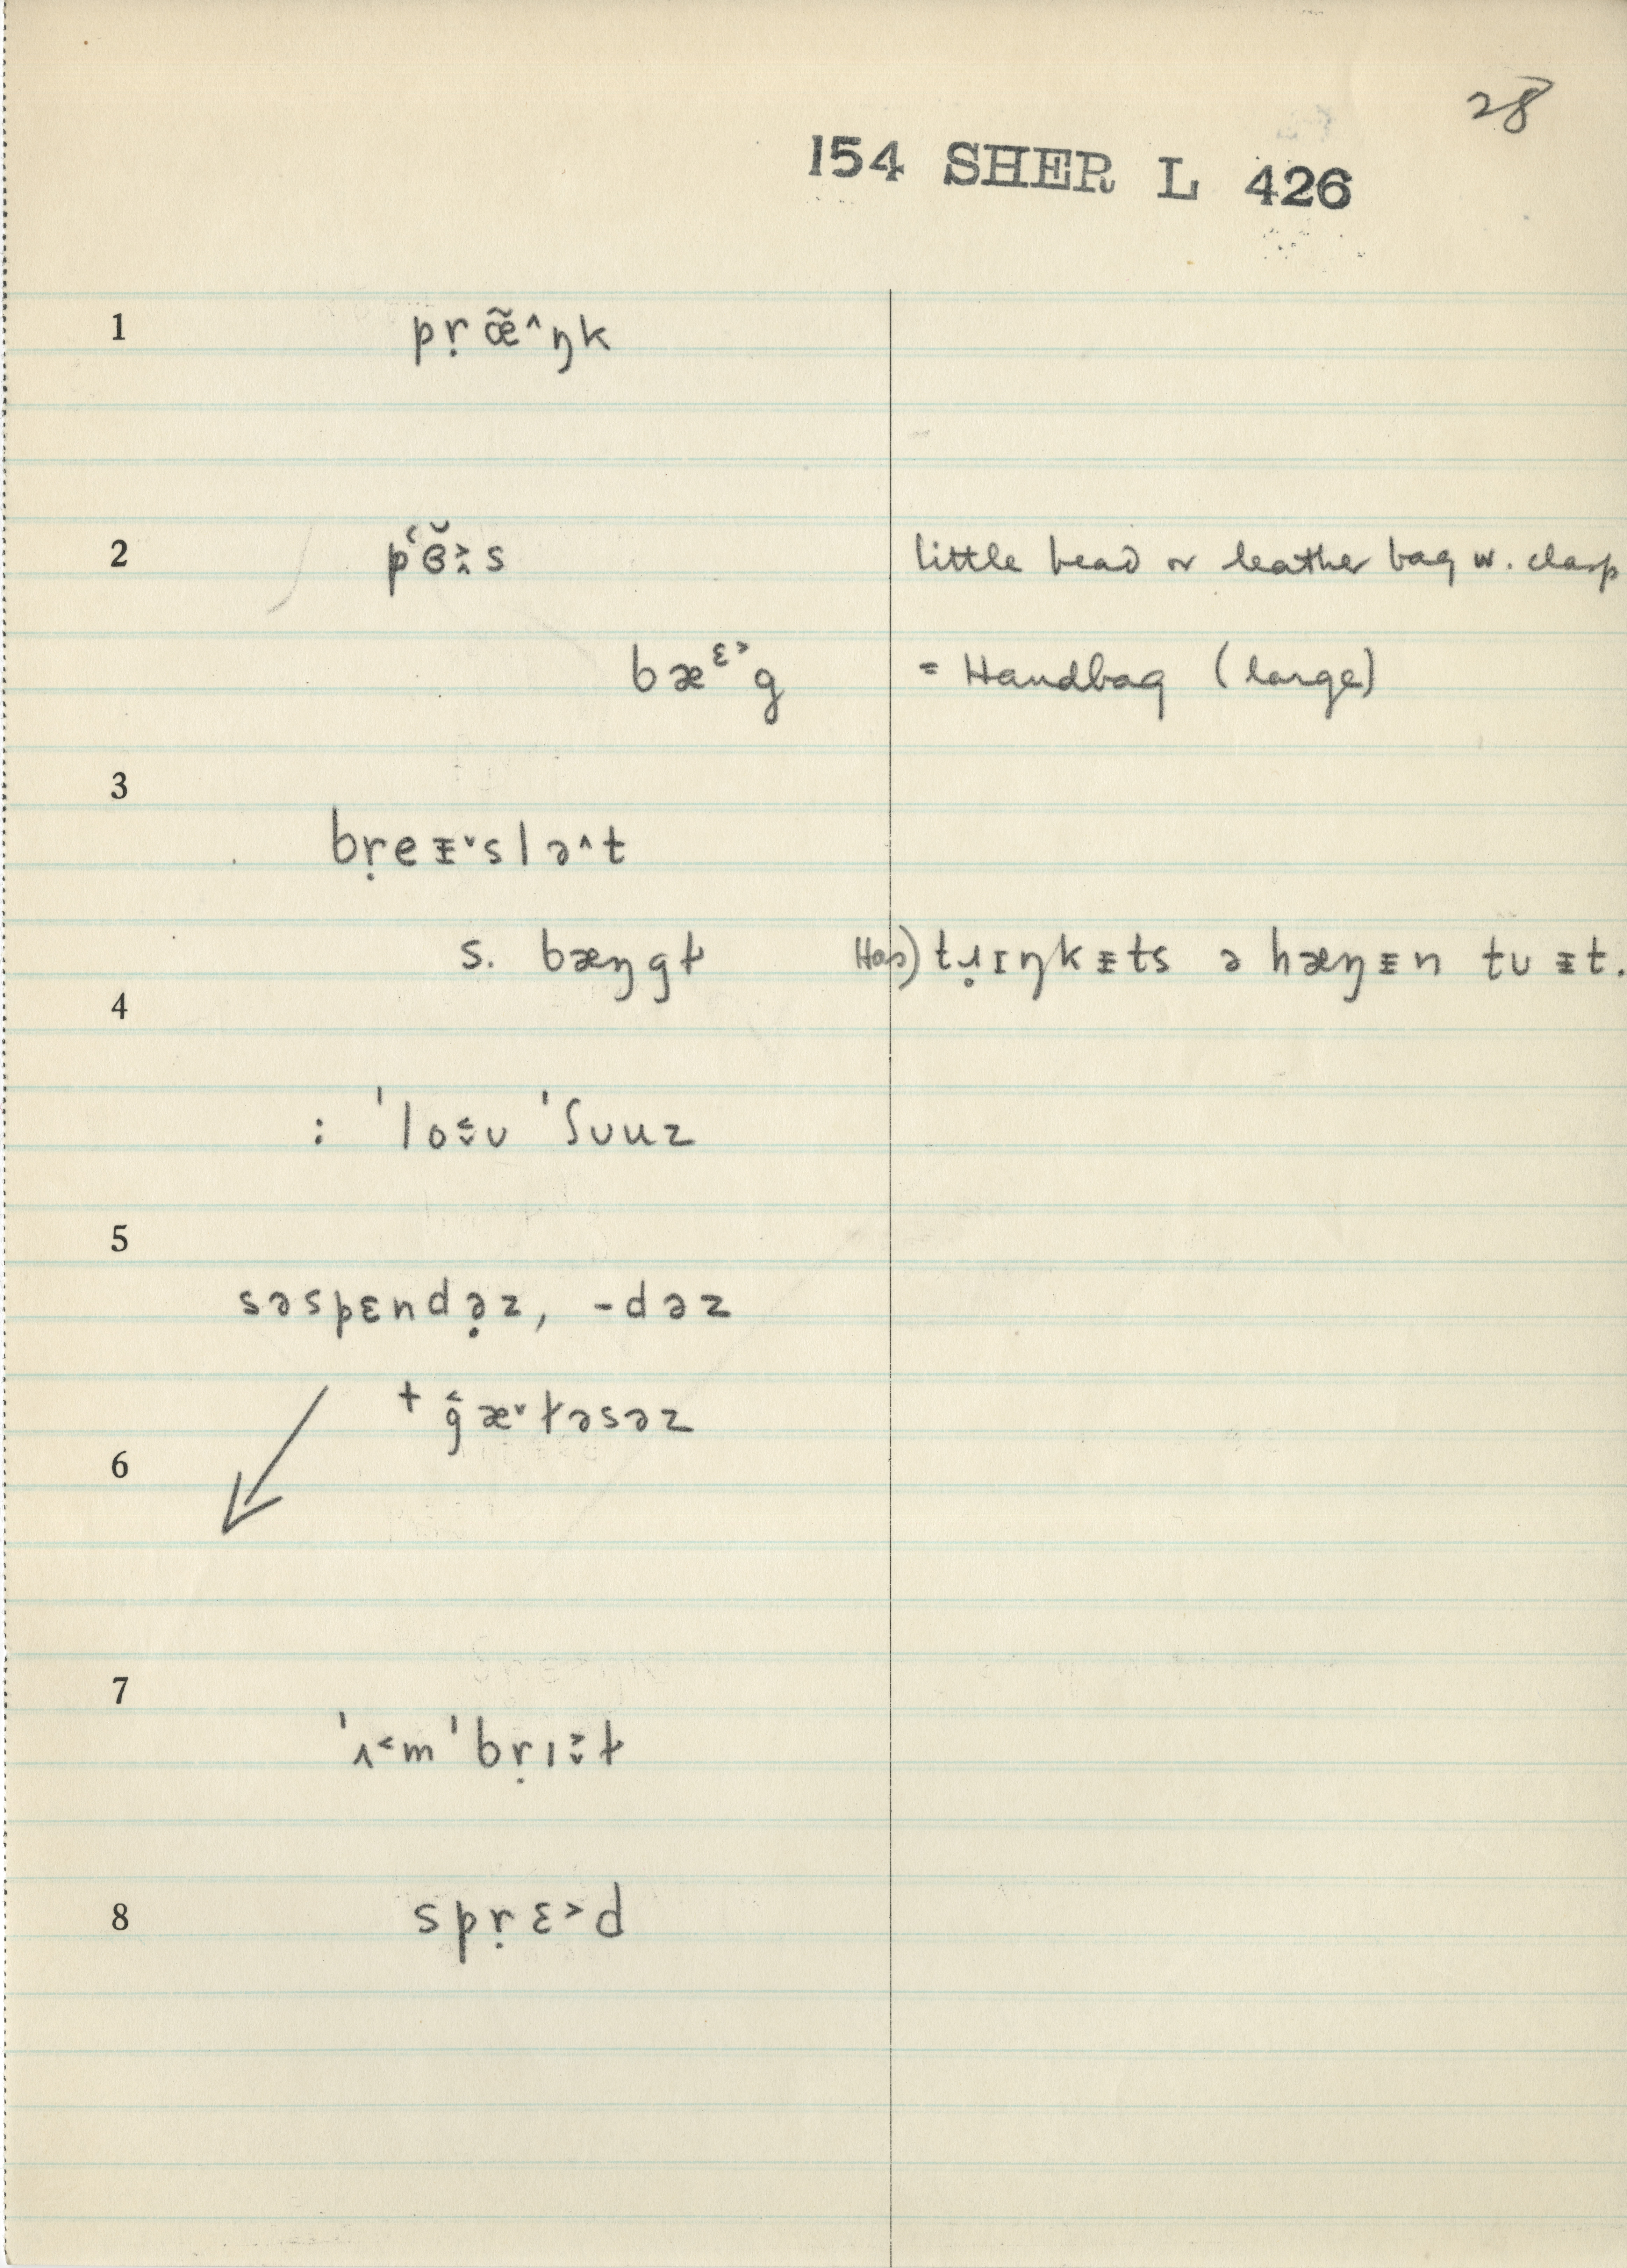 28
154 SHER L 426
1 pṛæ̃˄ŋk
2 pʻɞ̆˲̭s little bead or leather bag w. clasp
bæᵋ˃g = Handbag (large)
3
bṛeᵻ˅slə˄t
s. bæŋgɫ Has) tɹ̣ɪŋkᵻts ə hæŋᵻn tʊ ᵻt.
4
: ˈlo˂̬ʊ ˈʃʊuz
5
səspɛndə̣z, -dəz
+ g̑æ˅ɫəsəz
6
7
ˈʌ˂mˈbṛɪ˃̬ɫ
8 spṛɛ˃d